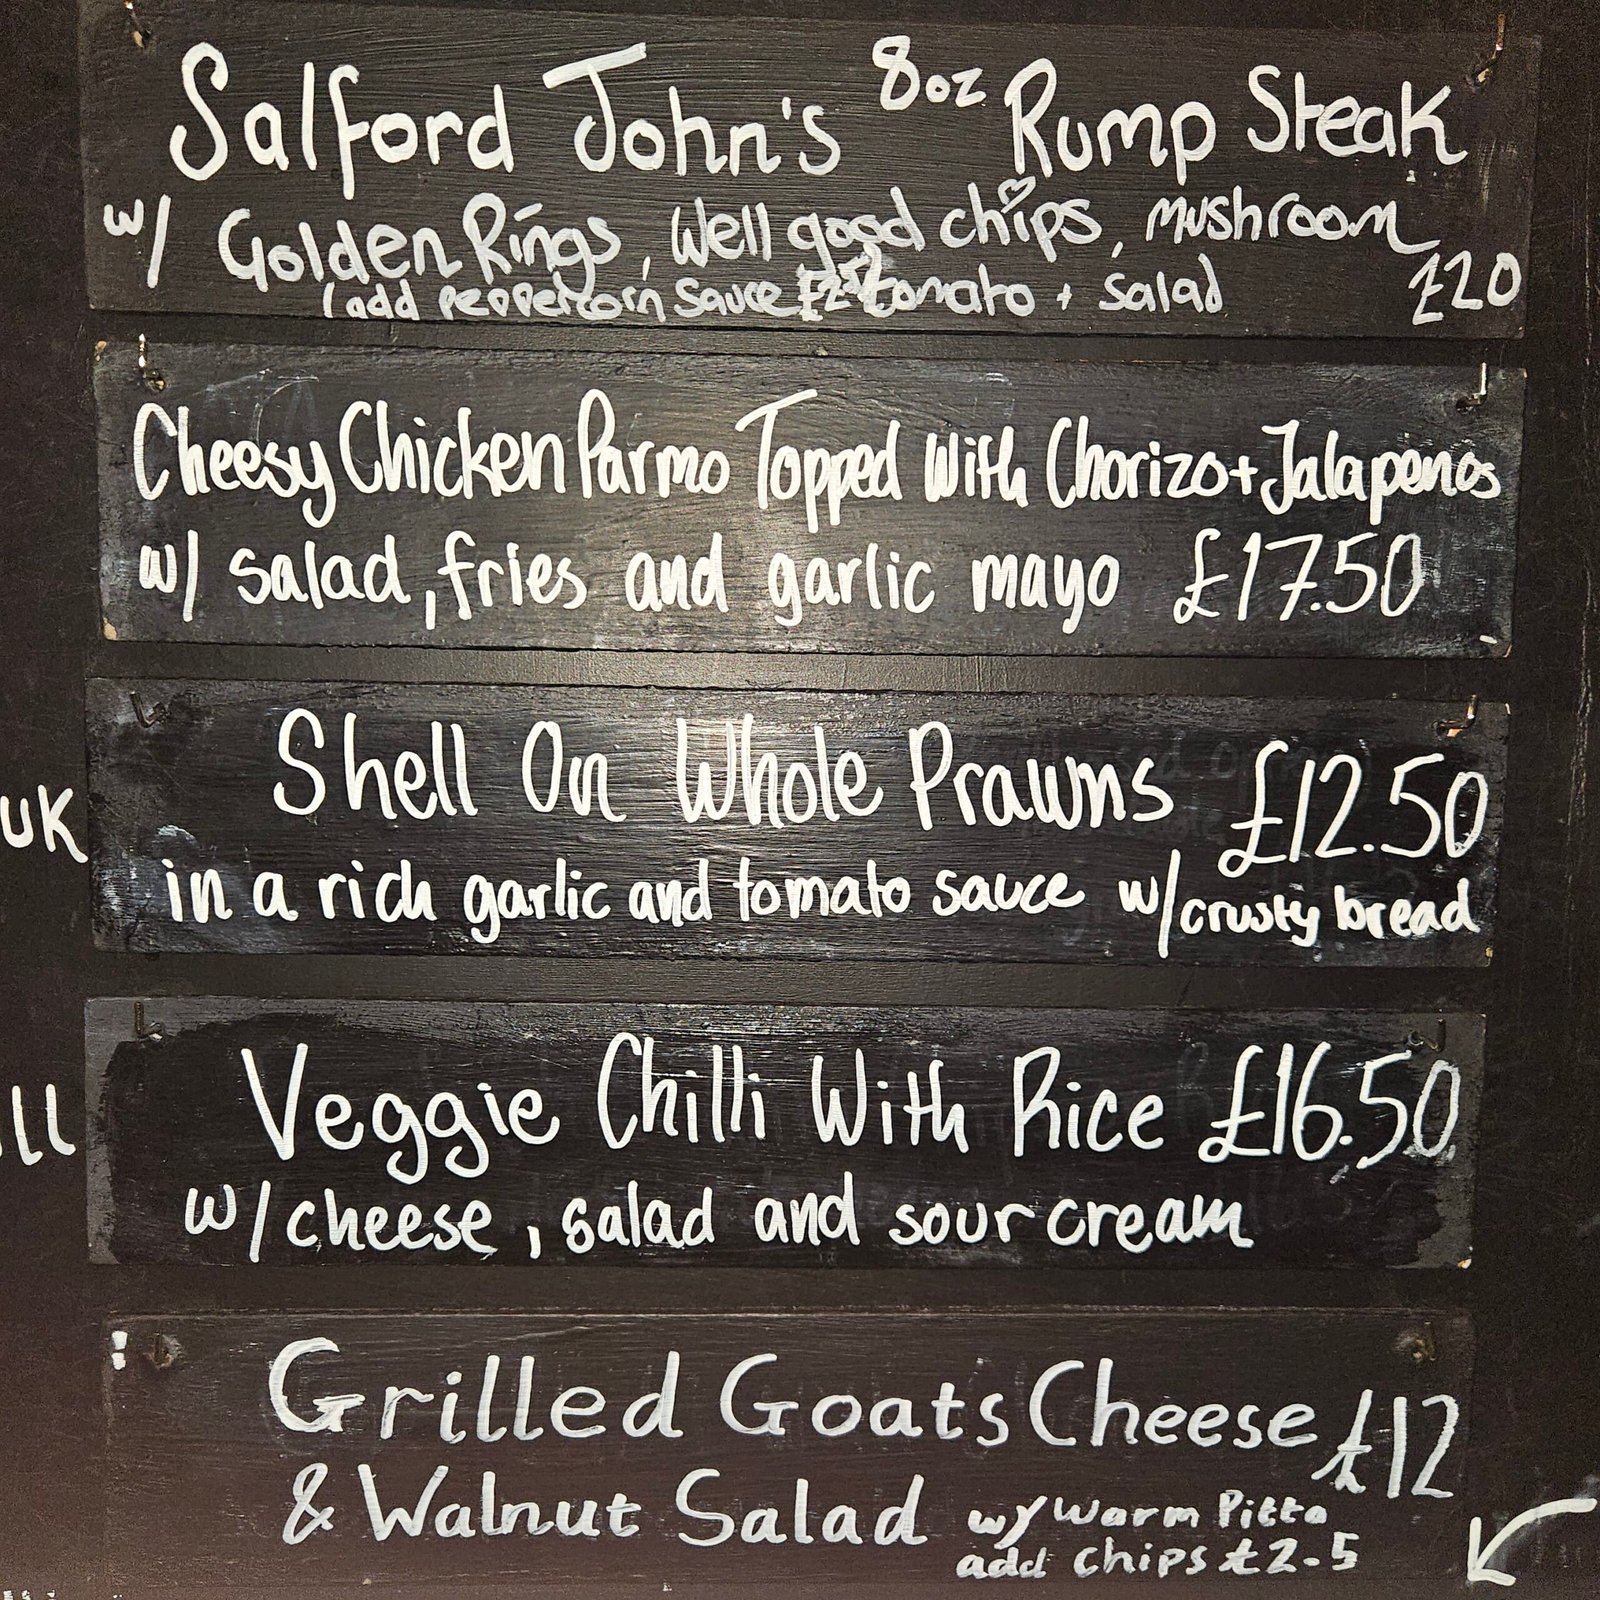 Salford John's 8oz Rump Steak
w/ Golden Rings, Well good chips, mushroom
(add peppercorn sauce tomato + salad £20
Cheesy Chicken Parmo Topped With Chorizo + Jalapenos
w/ salad, fries and garlic mayo £17.50
Shell On Whole Prawns £12.50
in a rich garlic and tomato sauce w/ crusty bread
UK
Veggie Chilli With Rice £16.50
ill
w/ cheese, salad and sour cream
Grilled Goats Cheese £12
& Walnut Salad w/ Warm Pitta
add chips £2-5